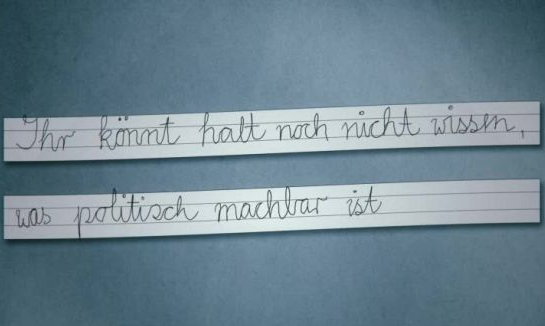 Ihr könnt halt noch nicht wissen,
was politisch machbar ist